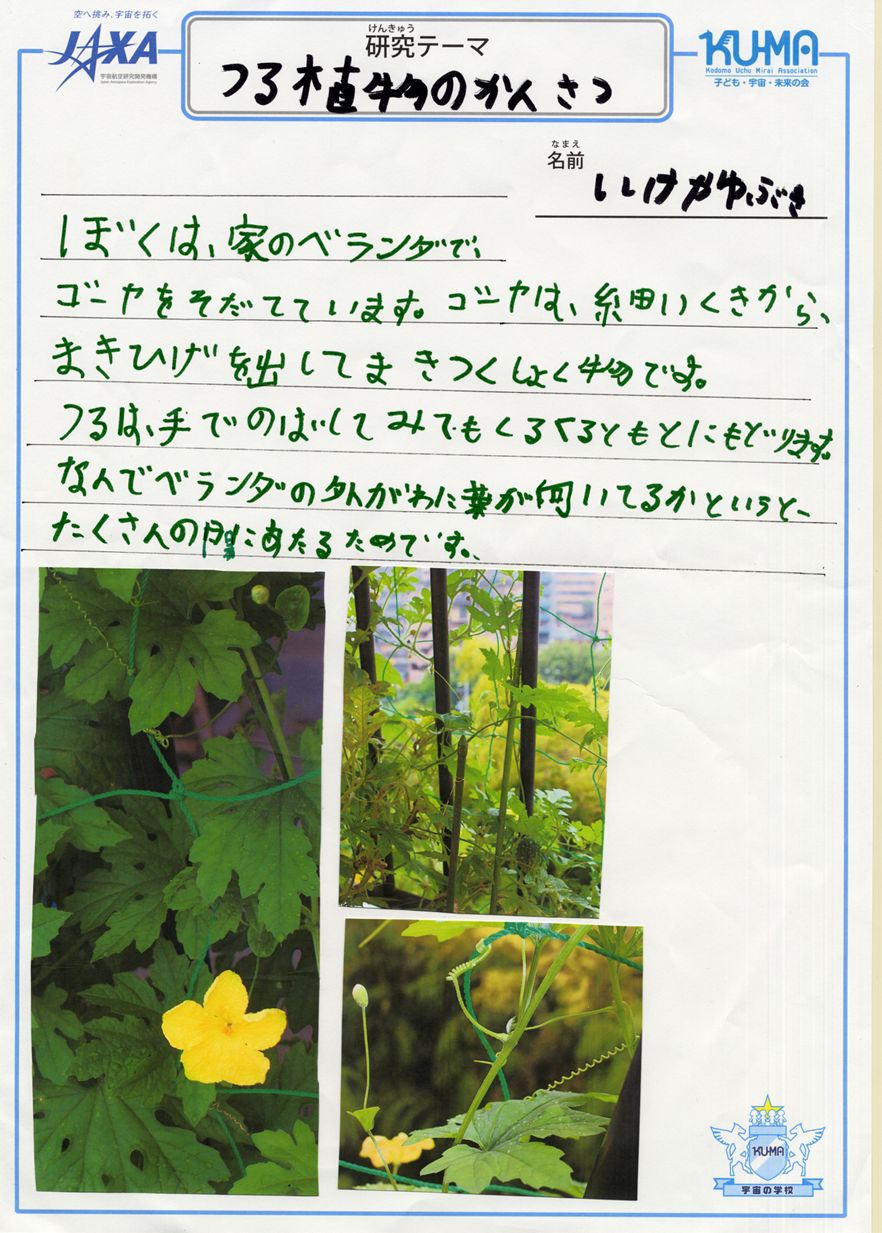 空へ挑み、宇宙を拓く
JAXA
宇宙航空研究開発機構
Japan Aerospace Exploration Agency
けんきゅう
研究テーマ
つる植物のかんさつ
KU-MA
Kodomo Uchu Mirai Association
子ども・宇宙・未来の会
なまえ
名前
ぼくは、家のベランダで、
ゴーヤをそだてています。ゴーヤは、細いくきから、
まきひげを出してまきつくしょく物です。
つるは、手でのばしてみてもくるくるともとにもどります。
なんでベランダの外がわに葉が向いてるかというと、
たくさんの陽にあたるためです。
KU-MA
宇宙の学校